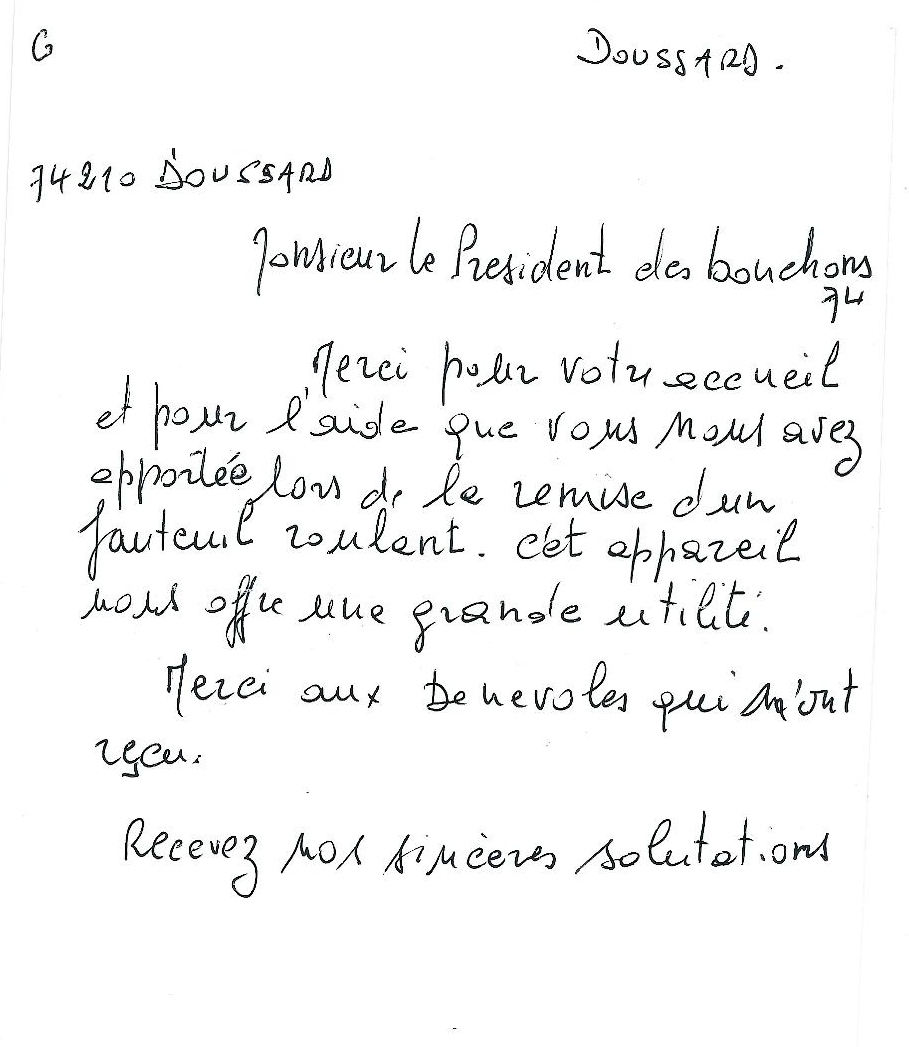 G
DOUSSARD.
74210 DOUSSARD
Monsieur le President des bouchons
74
Merci pour votre accueil
et pour l'aide que vous nous avez
apportée lors de la remise d'un
fauteuil roulant. cet appareil
nous offre une grande utilité.
Merci aux benevoles qui m'ont
reçu.
Recevez nos sincères salutations